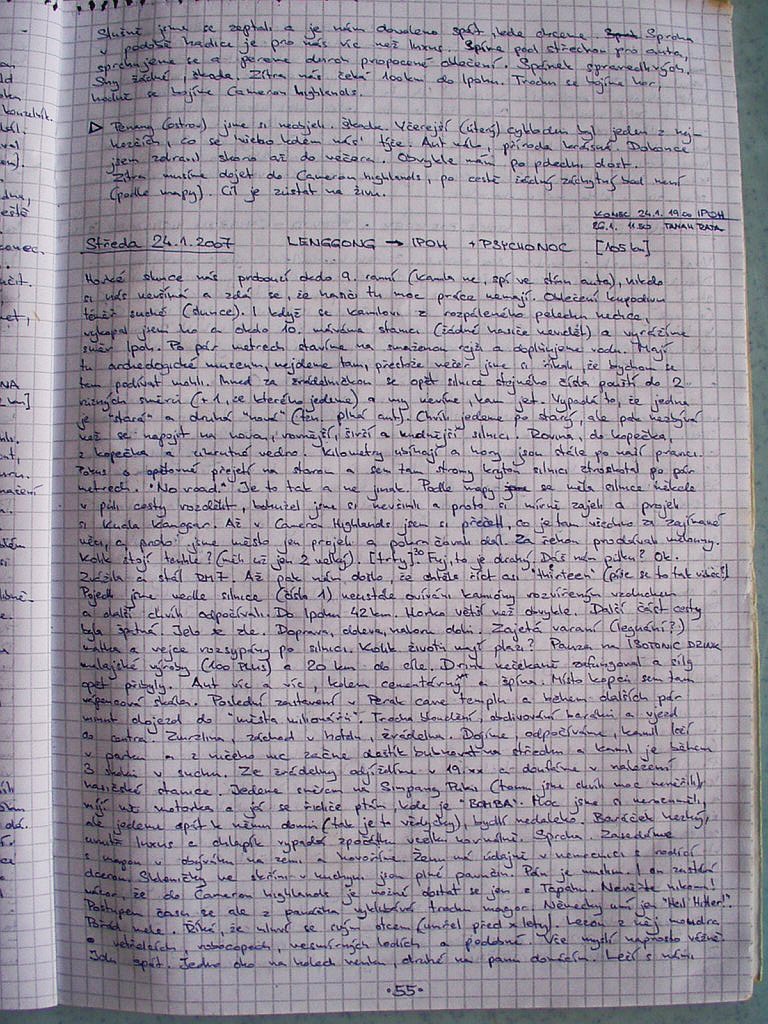 Slušně jsme se zeptali a je nám dovoleno spát, kde chceme. Sprcha
v podobě hadice je pro nás víc než luxus. Spíme pod střechou pro auta,
sprchujeme se a pereme durch propocené oblečení. Spánek spravedlivých.
Sny žádné, škoda. Zítra nás čeká 100km do Ipohu. Trochu se bojíme hor,
hodně se bojíme Cameron highlands.
▷ Penang (ostrov) jsme si neobjeli. Škoda. Včerejší (úterý) cykloden byl jeden z nej-
hezčích, co se kolem nás týče. Aut málo, příroda krásná. Dokonce
jsem zdravil skoro až do večera. Obvykle mám po poledni dost.
Zítra musíme dojet do Cameron highlands, po cestě žádný záchytný bod není
(podle mapy). Cíl je zůstat na živu.
KONEC 24.1. 19:00 IPOH
11:50 TANAH RATA
Středa 24.1.2007 LENGGONG → IPOH + PSYCHONOC [105 km]
Horké slunce nás probouzí okolo 9. ranní (Kamila ne, spí ve stínu auta), nikdo
si nás nevšímá a zdá se, že hasiči tu moc práce nemají. Oblečení kupodivu
téměř suché (slunce). I když se Kamilovi z rozpáleného palechu nechce,
vykopal jsem ho a okolo 10. máváme stanici (žádné hasiče nevidět) a vyrážíme
směr Ipoh. Po pár metrech stavíme na smaženou rýži a doplňujeme vodu. Mají
tu archeologické muzeum, nejdeme tam, přestože večer jsme si říkali, že bychom se
tam podívat mohli. Hned za žrádelničkou se opět silnice stejného čísla pouští do 2
různých směrů (+1, ze kterého jedeme) a my nevíme, kam jet. Vypadá to, že jedna
je "stará" a druhá "nová" (ta plná aut). Chvíli jedeme po starý, ale pak nezbývá
než se napojit na novou, rovnější, širší a nudnější silnici. Rovina, do kopečka,
z kopečka a ukrutné vedro. Kilometry ubíhají a hory jsou stále po naší pravici.
Pokus o opětovné přejetí na starou a sem tam stromy krytou silnici ztroskotal po pár
metrech. "No road." Je to tak a ne jinak. Podle mapy se měla silnice někde
v půli cesty rozdělit, bohužel jsme si nevšimli a proto si mírně zajeli a projeli
si Kuala Kangsar. Až v Cameron Highlands jsem si přečetl, co je tam všechno za zajímavé
věci, a proto jsme město jen projeli a pokračovali dál. Za řekou prodávali melouny.
Kolik stojí tenhle? (měli už jen 2 velký). [trty].³⁰ Fuj, to je drahý. Dáš nám půlku? Ok.
Zvážila a stál RM7. Až pak nám došlo, že chtěla říct asi "thirteen" (píše se to tak vůbec?)
Pojedli jsme vedle silnice (číslo 1) neustále ovíváni kamióny rozvířeným vzduchem
a další chvíli odpočívali. Do Ipohu 42 km. Horko větší než obvykle. Další část cesty
byla špatná. Jelo se zle. Doprava, doleva, nahoru dolů. Zajetá varani (leguáni?)
matka a vejce rozsypány po silnici. Kolik životů myší plaz? Pauza na ISOTONIC DRINK
malajské výroby (100 PLUS) a 20 km do cíle. Drink nečekaně zafungoval a síly
opět přibyly. Aut víc a víc, kolem cementárny a špína. Místo kopců sem tam
vápencová skála. Poslední zastavení v Perak cave templu a během dalších pár
minut dojezd do "města milionářů". Trocha bloudění, obdivování baráků a vjezd
do centra. Zmrzlina, záchod v hotelu, žrádelna. Dojíme, odpočíváme, Kamil leží
v parku a z ničeho nic začne deštík bubnovat na střechu a Kamil je během
3 sekund v suchu. Ze žrádelny odjíždíme v 19.xx a doufáme v nalezení
hasičské stanice. Jedeme směrem na Simpang Pulai (tomu jsme skvíli moc nevěřili)
míjí nás motorka a já se řidiče ptám, kde je "BOMBA". Moc jsme si nerozuměli,
ale jedeme zpět k němu domů (tak je to vždycky), bydlí nedaleko. Baráček hezký,
uvnitř luxus a chlapík vypadá zpočátku vcelku normálně. Sprcha. Zasedáme
s mapou v obýváku na zemi a hovoříme. Ženu má údajně v nemocnici s rodící
dcerou. Skleničky ve skříni v kuchyni jsou plné pavučin. Pán je muslim. I on zastává
názor, že do Cameron highlands je možné dostat se jen z Tapahu. Nevěřte nikomu!
Postupem času se ale z pantáty vyklubává trochu magor. Německy umí jen "Heil Hitler!"
Pořád mele. Říká, že mluví se svým otcem (umřel před x lety). Lezou z něj moudra
o vetřelcích, robocopech, vesmírných lodích a podobně. Vše myslí naprosto vážně.
Jdu spát. Jedno oko na kolech venku, druhé na panu domácím. Leží s námi
·55·